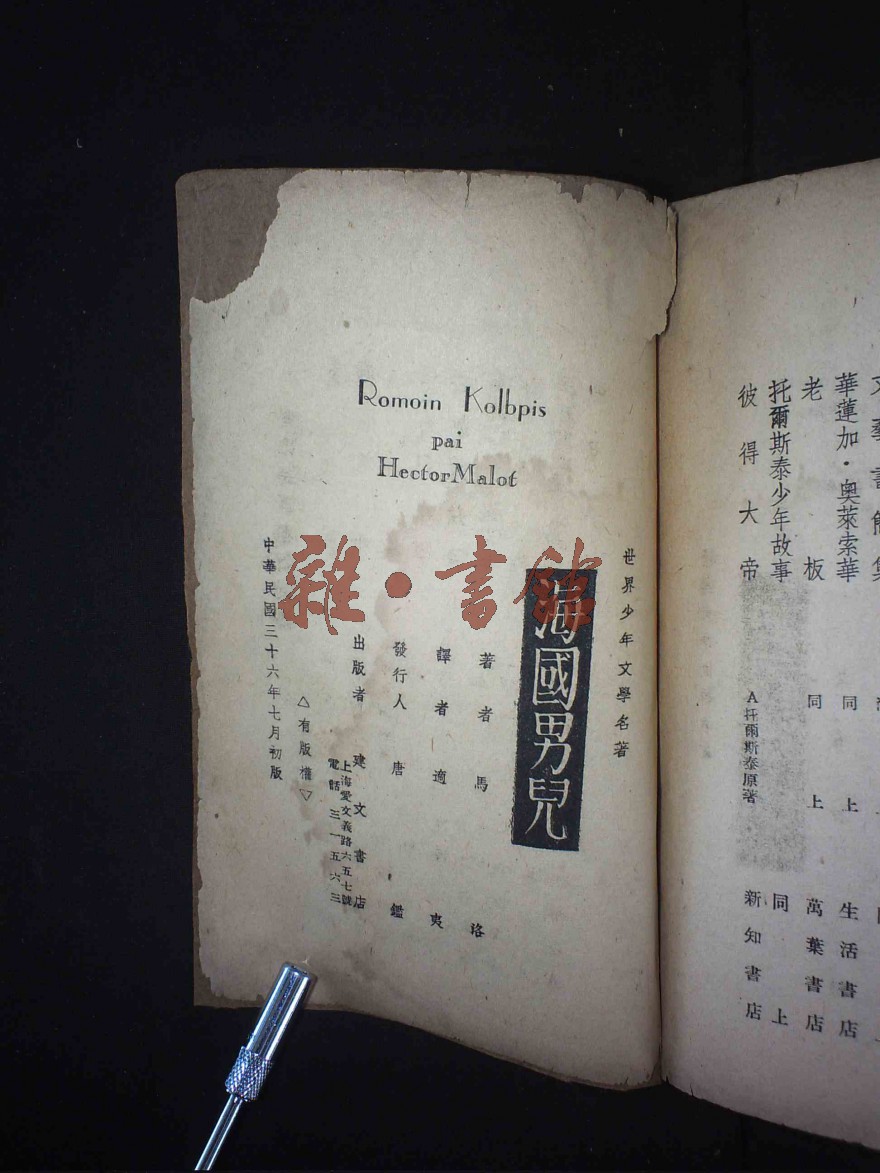 Romoin Kolbpis
pai
Hector Malot
世界少年文學名著
海國男兒
著者 馬洛
譯者 適夷
發行人 唐鑑
出版者 建文書店
上海愛文義路六五七號
電話 三一五六三
△有版權▽
中華民國三十六年七月初版
雜·書館
華蓮加·奧萊索華 同上 生活書店
老板 同上 萬葉書店
托爾斯泰少年故事 同上
彼得大帝 A托爾斯泰原著 新知書店